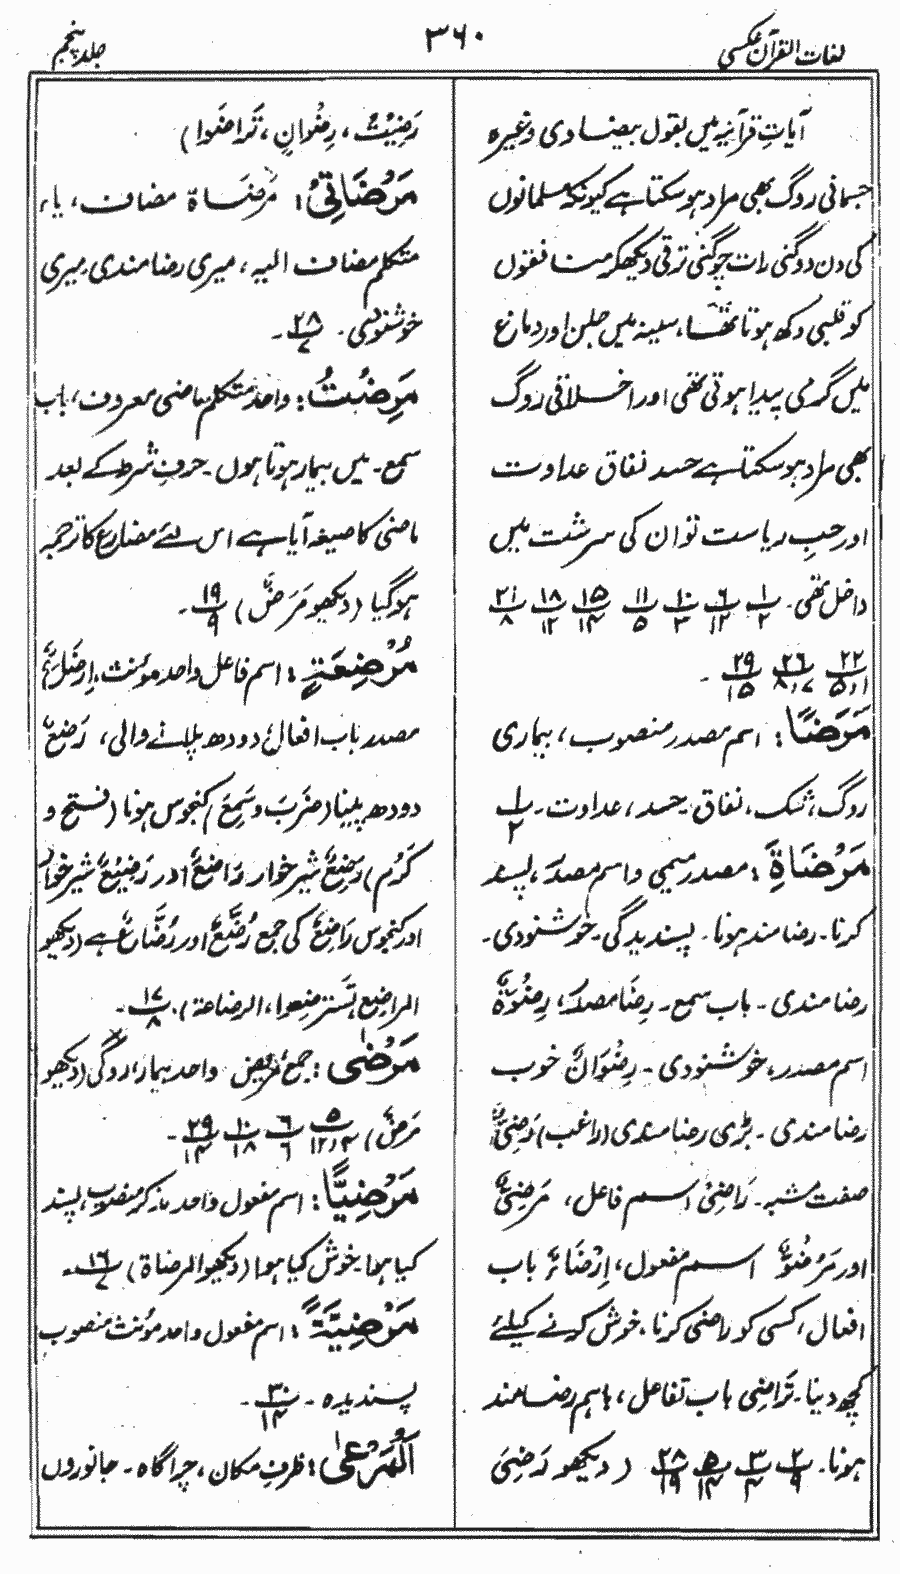 لغات القرآن عکسی
۳۶۰
جلد پنجم
آیاتِ قرآنیہ میں بقول بیضاوی وغیرہ
جسمانی روگ بھی مراد ہو سکتا ہے کیونکہ مسلمانوں
کی دن دوگنی رات چوگنی ترقی دیکھکر منافقوں
کو قلبی دکھ ہوتا تھا، سینہ میں جلن اور دماغ
میں گرمی پیدا ہوتی تھی اور اخلاقی روگ
بھی مراد ہو سکتا ہے حسد نفاق عداوت
اور حبِ ریاست تو ان کی سرشت میں
داخل تھی۔ ۱/۲ ۶/۱۲ ۱۰/۳ ۱۱/۵ ۱۵/۱۴ ۱۸/۱۲ ۲۱/۸
۲۲/۵،۱ ۲۶/۸،۷ ۲۹/۱۵ ۔
مَرَضًا: اسم مصدر منصوب، بیماری
روگ، شک، نفاق، حسد، عداوت۔ ۱/۲
مَرْضَاةِ: مصدر میمی و اسم مصدر، پسند
کرنا۔ رضامند ہونا۔ پسندیدگی۔ خوشنودی۔
رضامندی۔ باب سمع۔ رِضًا مصدر، رِضْوَةٌ
اسم مصدر، خوشنودی۔ رِضْوَانٌ خوب
رضامندی۔ بڑی رضامندی (راغب) رَضِیٌّ
صفت مشبہ۔ رَاضِیْ اسم فاعل، مَرْضِیٌّ
اور مَرْضُوٌّ اسم مفعول، اِرْضَاءٌ باب
افعال، کسی کو راضی کرنا، خوش کرنے کیلئے
کچھ دینا۔ تَرَاضِی باب تفاعل، باہم رضامند
ہونا۔ ۲/۹ ۳/۴ ۵/۱۴ ۲۸/۱۹ (دیکھو رَضِیَ
رَضِیْتُ، رِضْوَانٍ، تَرَاضَوا)
مَرْضَاتِیْ: مَرضَاة مضاف، یاء
متکلم مضاف الیہ، میری رضامندی، میری
خوشنودی۔ ۲۸/۷ ۔
مَرِضْتُ: واحد متکلم ماضی معروف، باب
سمع۔ میں بیمار ہوتا ہوں۔ حرفِ شرط کے بعد
ماضی کا صیغہ آیا ہے اس لئے مضارع کا ترجمہ
ہوگیا (دیکھو مَرَضٌ) ۱۹/۹ ۔
مُرْضِعَةٍ: اسم فاعل واحد مؤنث، اِرْضَاعٌ
مصدر باب افعال دودھ پلانے والی، رَضْعٌ
دودھ پینا (ضَرَبَ و سَمِعَ) کنجوس ہونا (فتح و
کَرُم) رَضِعٌ شیرخوار رَاضِعٌ اور رَضِیْعٌ شیرخوار
اور کنجوس رَاضِعٌ کی جمع رُضَّعٌ اور رُضَّاعٌ ہے (دیکھو
المراضع، تسترضعوا، الرضاعة)۔ ۱۷/۸ ۔
مَرْضٰی: جمع مَریض واحد بیمار، روگی (دیکھو
مَرَضٌ) ۵/۱۲،۴ ۶/۶ ۱۰/۱۸ ۲۹/۱۴ ۔
مَرْضِیًّا: اسم مفعول واحد مذکر منصوب، پسند
کیا ہوا۔ خوش کیا ہوا (دیکھو المرضاة) ۱۶/۷ ۔
مَرْضِیَّةً: اسم مفعول واحد مؤنث منصوب
پسندیدہ۔ ۳۰/۱۴ ۔
اَلْمَرْعٰی: ظرفِ مکان، چراگاہ۔ جانوروں